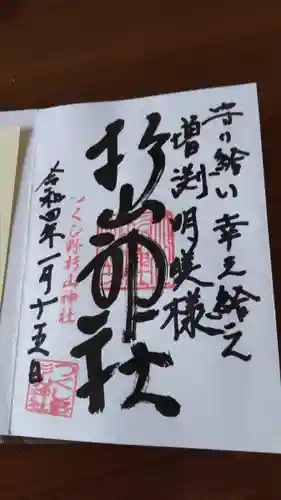 守り給い幸え給え
増渕 明咲様
杉山神社
つくし野杉山神社
令和四年一月十五日